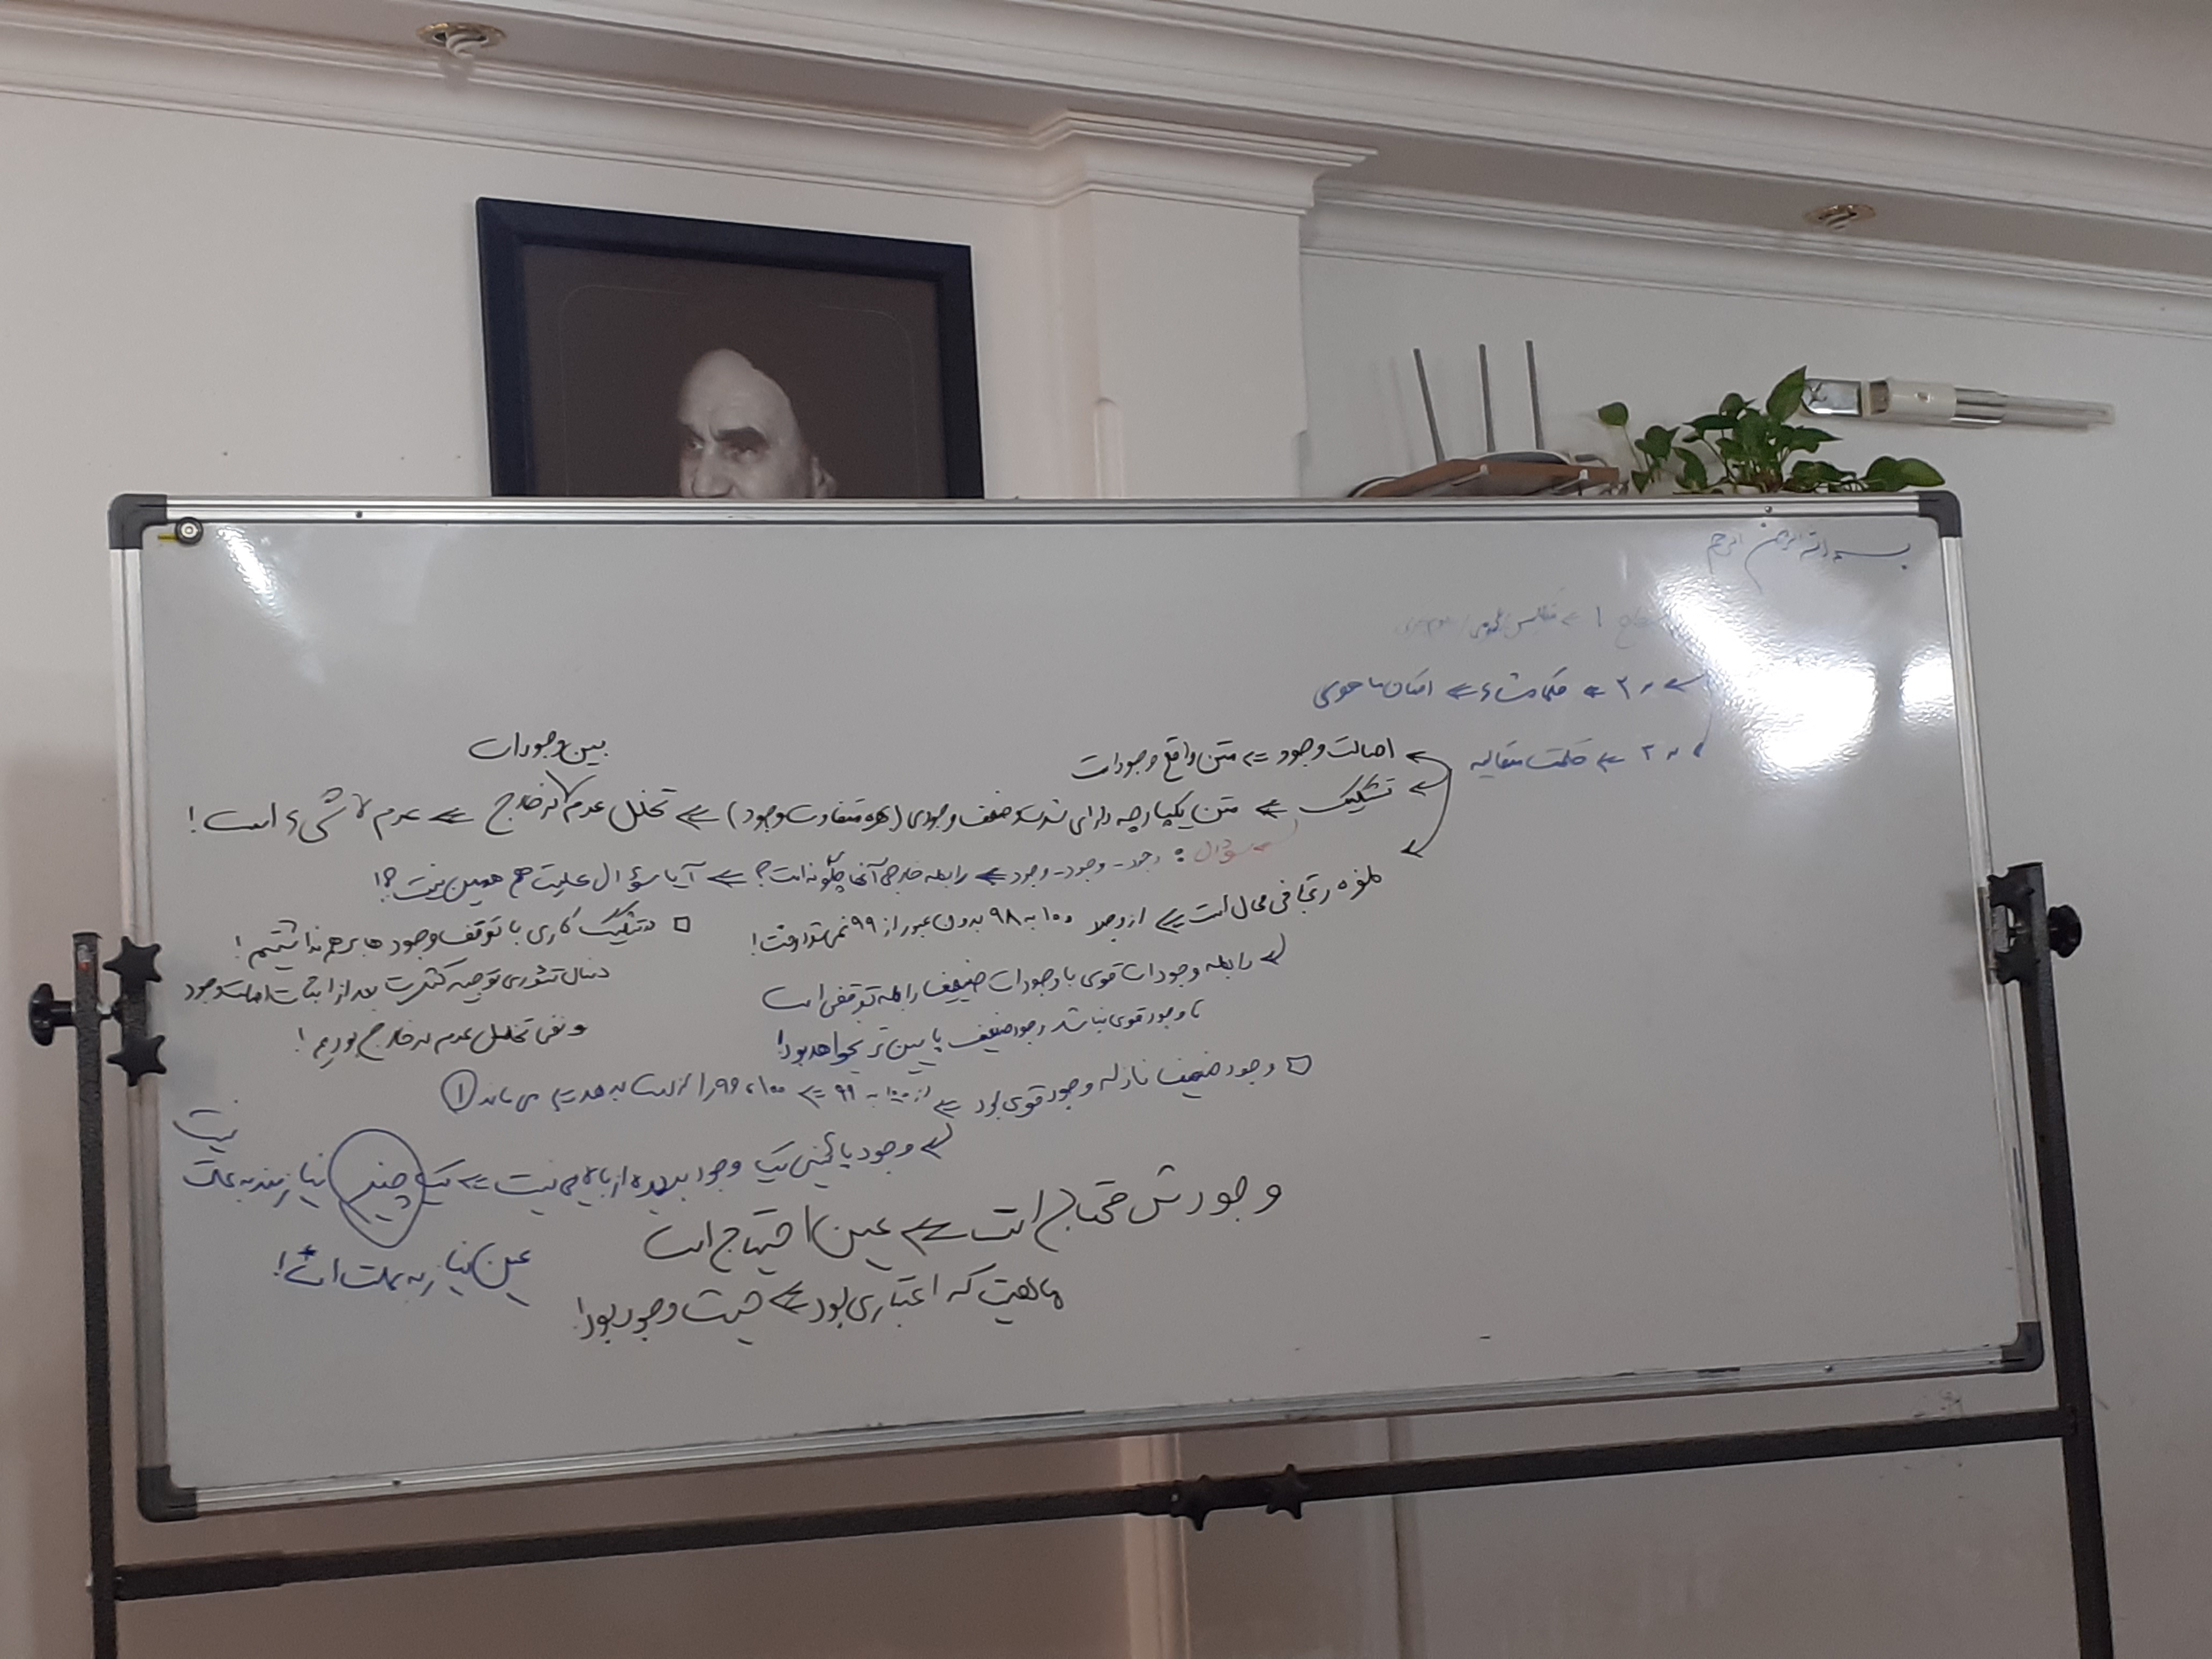 بسم الله الرحمن الرحیم
سطح ۱ ⇐
۲ ⇐ حکمت مشاء ⇐ امکان ماهوی
۳ ⇐ حکمت متعالیه
اصالت وجود ⇐ متن واقع وجودات
بین وجودات
تشکیک ⇐ متن یکپارچه دارای شدت و ضعف وجودی (بهره متفاوت وجود) ⇐ تخلل عدم در خارج ⇐ عدم لاشیء است!
سؤال: وجود - وجود - وجود ⇐ رابطه خارجی آنها چگونه است؟ ⇐ آیا سؤال علیت هم همین نیست؟!
طفره رتبتاً فی محال است ⇐ از وجود ۱۰۰ به ۹۸ بدون عبور از ۹۹ نمی‌توان رفت!
رابطه وجودات قوی با وجودات ضعیف رابطه توقفی است
تا وجود قوی نباشد وجود ضعیف پایین‌تر نخواهد بود!
□ در تشکیک کاری با توقف وجود ها بر هم نداشتیم!
دنبال تئوری توجیه کثرت بعد از اثبات اصالت وجود
و نفی تخلل عدم در خارج بودیم!
□ وجود ضعیف نازله وجود قوی بود ⇐ از ۱۰۰ به ۹۹ ⇐ ۱۰۰، ۹۹ را از دست بدهد می‌ماند ۱
⇐ وجود پائینی یک وجود بریده از بالایی نیست ⇐ یک چیز نیازمند به علت نیست
عین نیاز به علت است!
وجودش محتاج است ⇐ عین احتیاج است
ماهیت که اعتباری بود ⇐ حیث وجود بود!